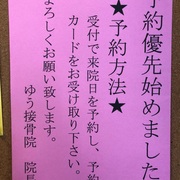 予約優先始めました
★予約方法★
受付で来院日を予約し、予約
カードをお受け取り下さい。
よろしくお願い致します。
ゆう接骨院 院長